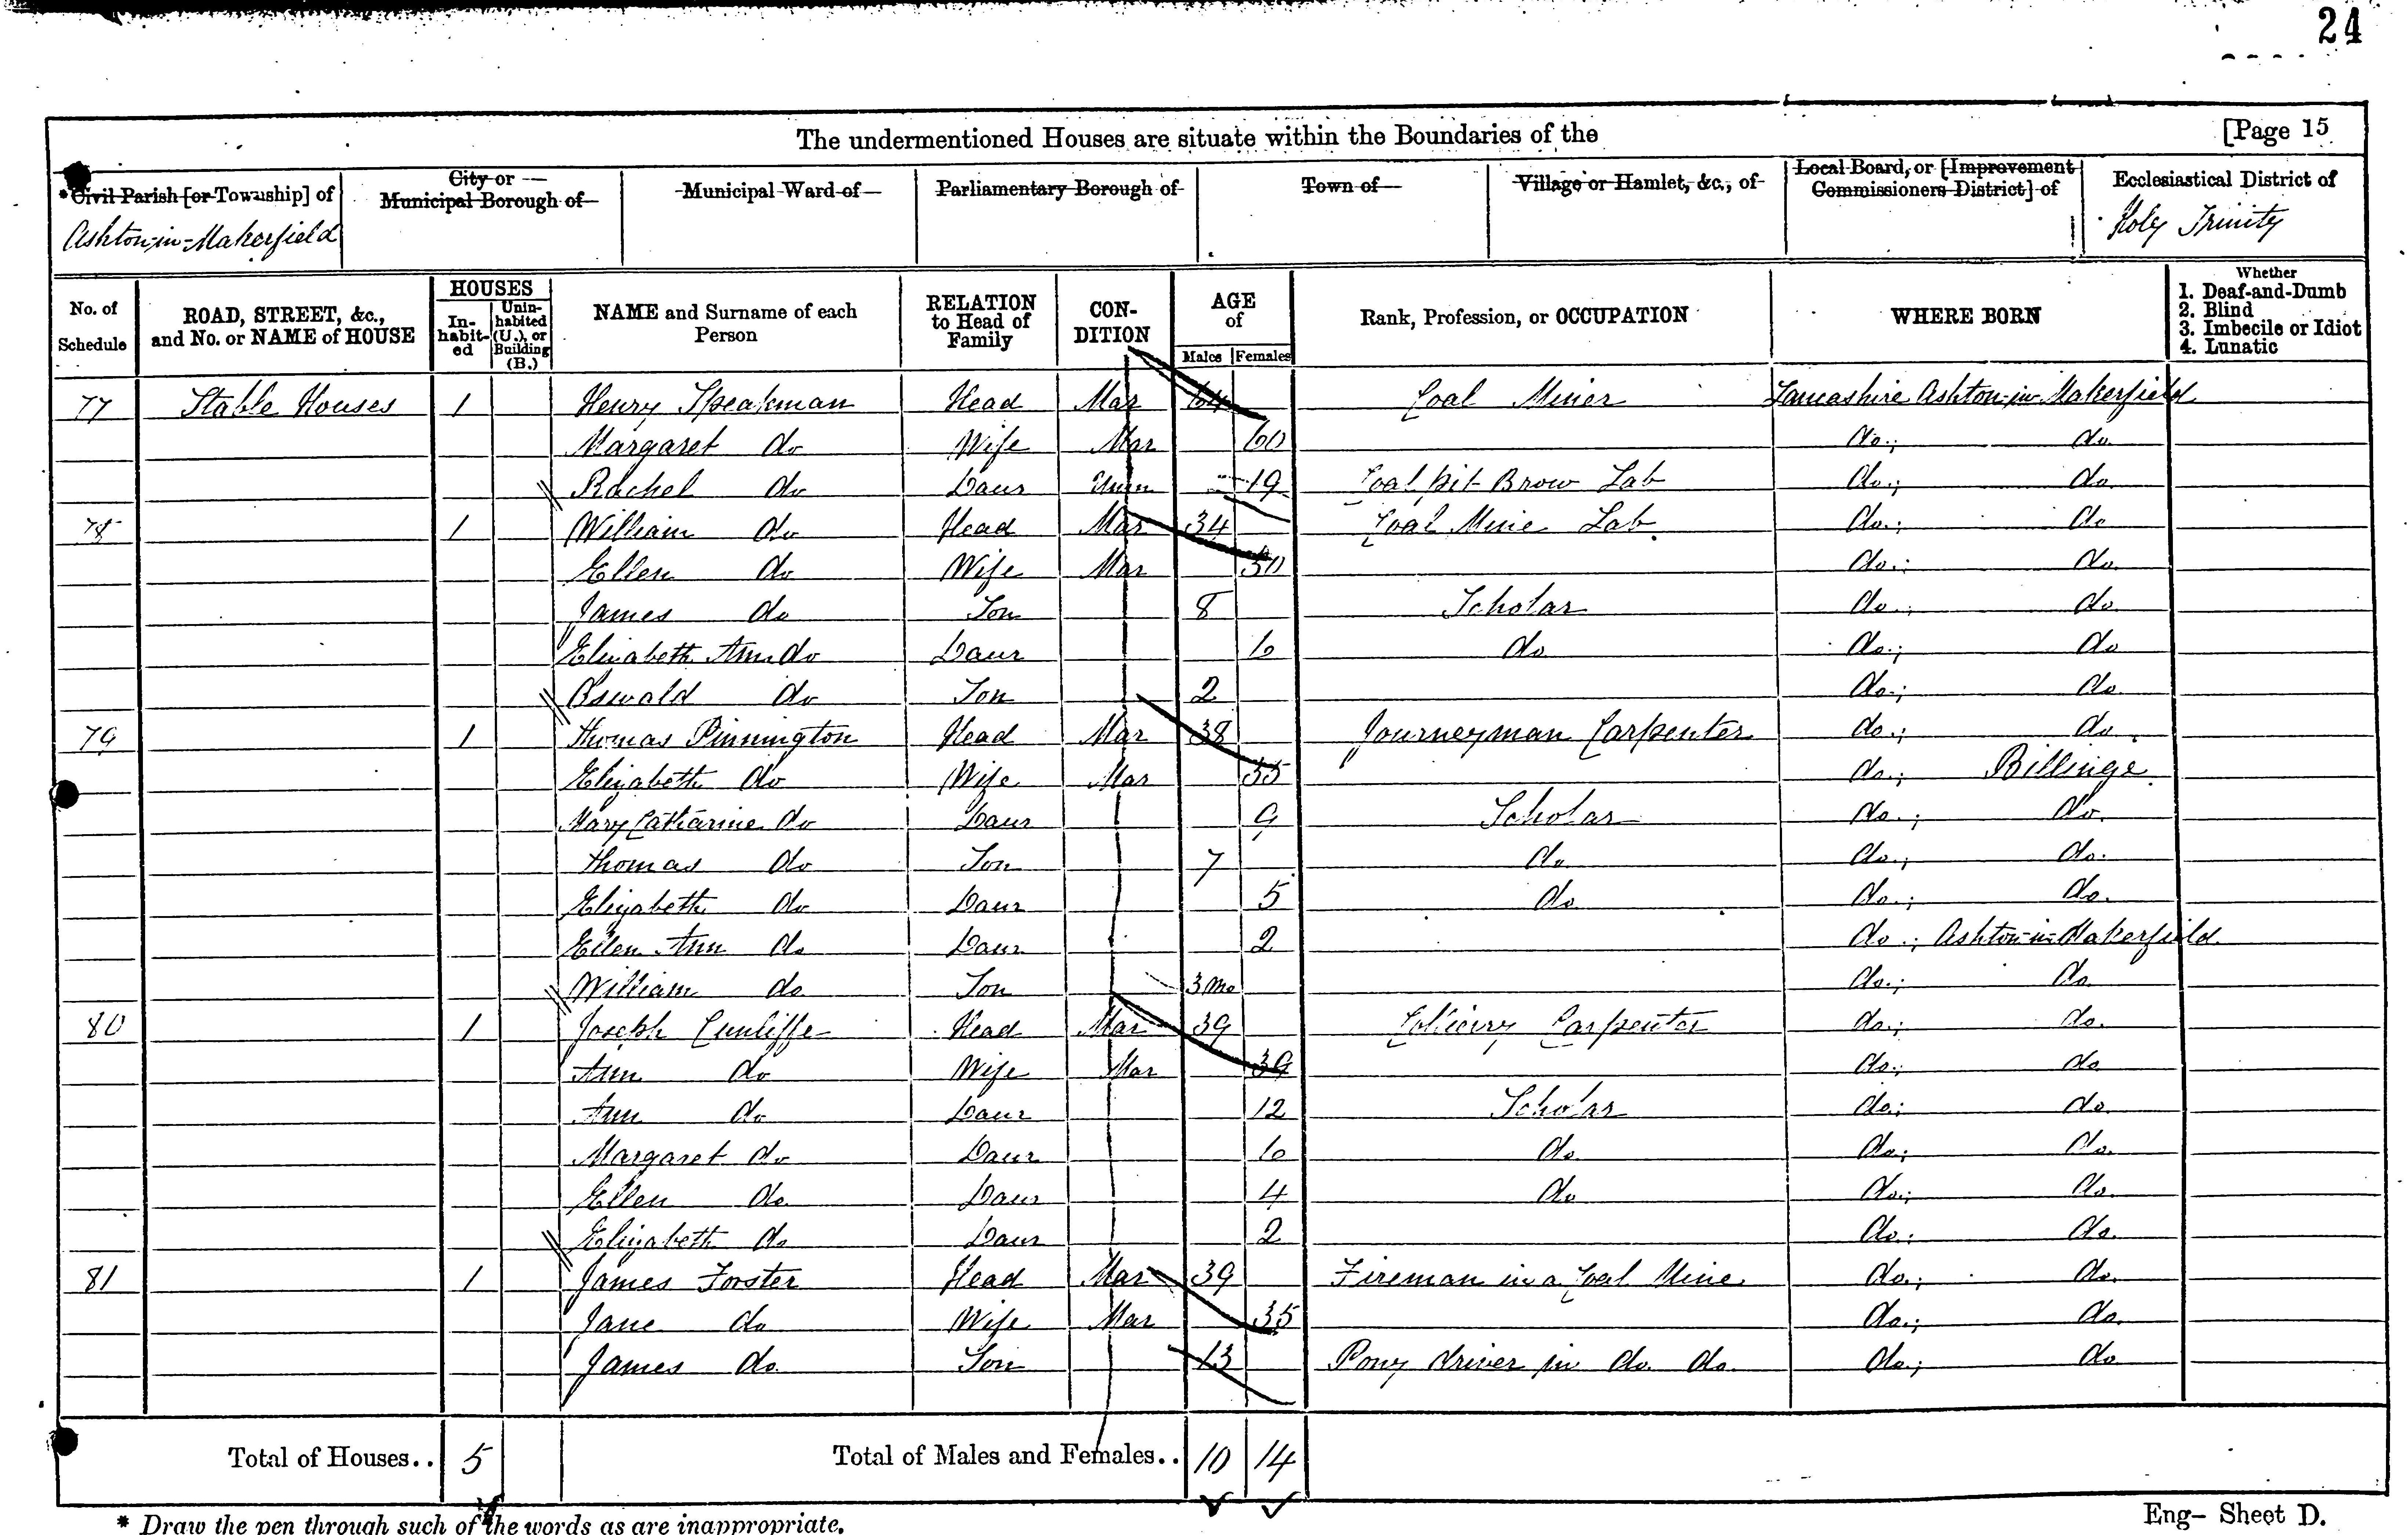 24
The undermentioned Houses are situate within the Boundaries of the [Page 15
* Civil Parish [or Township] of City or Municipal Borough of Municipal Ward of Parliamentary Borough of Town of Village or Hamlet, &c., of Local Board, or [Improvement Commissioners District] of Ecclesiastical District of
Ashton-in-Makerfield Holy Trinity
No. of Schedule ROAD, STREET, &c., and No. or NAME of HOUSE HOUSES In-habit-ed Unin-habited (U.), or Building (B.) NAME and Surname of each Person RELATION to Head of Family CON-DITION AGE of Males Females Rank, Profession, or OCCUPATION WHERE BORN Whether 1. Deaf-and-Dumb 2. Blind 3. Imbecile or Idiot 4. Lunatic
77 Stable Houses 1 Henry Speakman Head Mar 64 Coal Miner Lancashire Ashton-in-Makerfield
Margaret do Wife Mar 60 do; do
Rachel do Daur Unm 19 Coal pit Brow Lab do; do
78 1 William do Head Mar 34 Coal Mine Lab do; do
Ellen do Wife Mar 30 do; do
James do Son 8 Scholar do; do
Elizabeth Ann do Daur 6 do do; do
Oswald do Son 2 do; do
79 1 Thomas Pinnington Head Mar 38 Journeyman Carpenter do; do
Elizabeth do Wife Mar 35 do; Billinge
Mary Catharine do Daur 9 Scholar do; do
Thomas do Son 7 do do; do
Elizabeth do Daur 5 do do; do
Ellen Ann do Daur 2 do; Ashton-in-Makerfield
William do Son 3 mo do; do
80 1 Joseph Cunliffe Head Mar 39 Colliery Carpenter do; do
Ann do Wife Mar 39 do; do
Ann do Daur 12 Scholar do; do
Margaret do Daur 6 do do; do
Ellen do Daur 4 do do; do
Elizabeth do Daur 2 do; do
81 1 James Forster Head Mar 39 Fireman in a Coal Mine do; do
Jane do Wife Mar 35 do; do
James do Son 13 Pony driver in do do do; do
Total of Houses.. 5 Total of Males and Females.. 10 14
* Draw the pen through such of the words as are inappropriate. Eng- Sheet D.